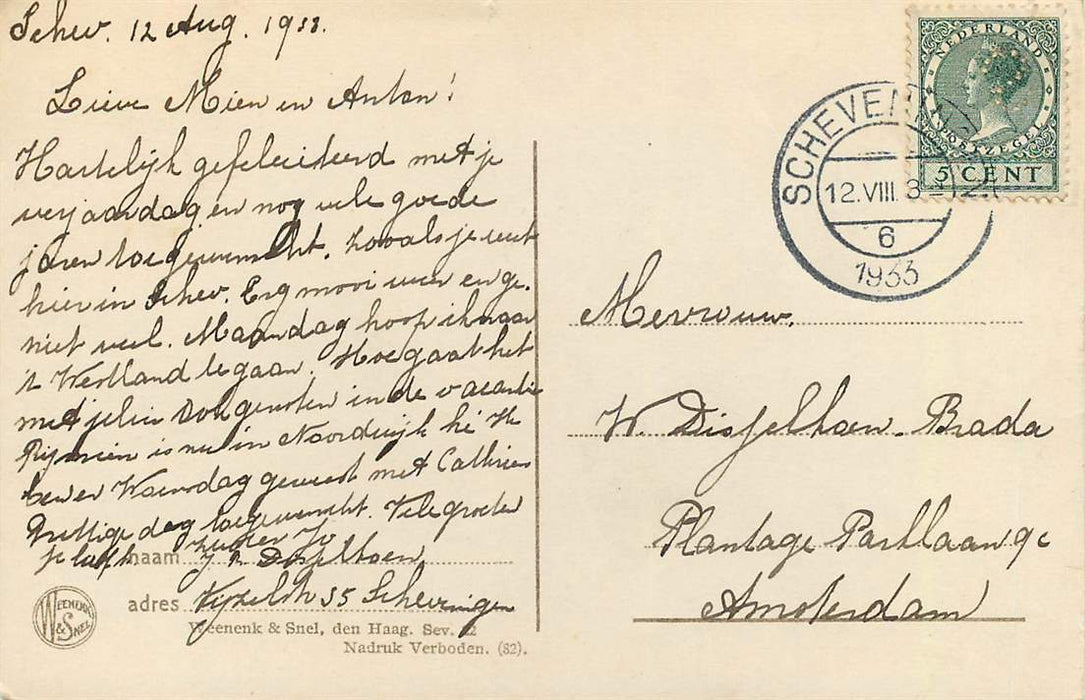 Schev. 12 Aug. 1933.
Lieve Mien en Anton!
Hartelijk gefeliciteerd met je
verjaardag en nog vele goede
jaren toegewenscht. Zooals je weet
hier in Schev. Erg mooi weer en ge-
niet veel. Maandag hoop ik naar
't Westland te gaan. Hoe gaat het
met jelui genoten in de vacantie
is nu in Noordwijk hè Ik
ben er Woensdag geweest met
Prettige dag toegewenscht. Vele groeten
je zuster Jo
naam Disselkoen
adres 35 Scheveningen
WEENENK & SNEL
Weenenk & Snel, den Haag. Sev.
Nadruk Verboden. (82).
NEDERLAND
POSTZEGEL
5 CENT
SCHEVENINGEN
12.VIII.3
6
1933
Mevrouw.
W. Disselkoen-Brada
Plantage Parklaan 9c
Amsterdam